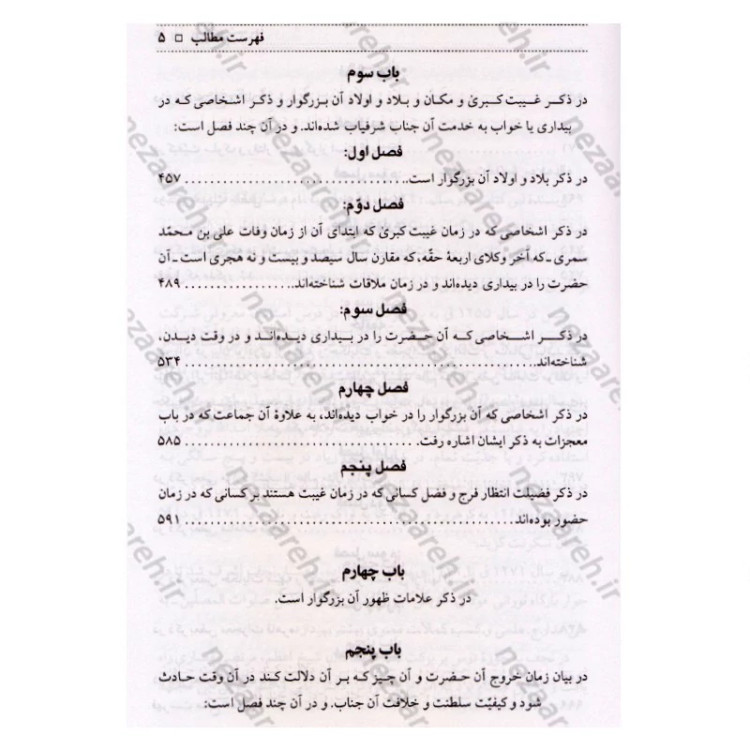 فهرست مطالب □ ۵
باب سوم
در ذکر غیبت کبریٰ و مکان و بلاد و اولاد آن بزرگوار و ذکر اشخاصی که در
بیداری یا خواب به خدمت آن جناب شرفیاب شده‌اند. و در آن چند فصل است:
فصل اول:
در ذکر بلاد و اولاد آن بزرگوار است. ۴۵۷
فصل دوّم:
در ذکر اشخاصی که در زمان غیبت کبریٰ که ابتدای آن از زمان وفات علی بن محمّد
سمری ـ که آخر وکلای اربعهٔ حقّه، که مقارن سال سیصد و بیست و نه هجری است ـ آن
حضرت را در بیداری دیده‌اند و در زمان ملاقات شناخته‌اند. ۴۸۹
فصل سوم:
در ذکر اشخاصی که آن حضرت را در بیداری دیده‌اند و در وقت دیدن،
شناخته‌اند. ۵۳۴
فصل چهارم
در ذکر اشخاصی که آن بزرگوار را در خواب دیده‌اند، به علاوهٔ آن جماعت که در باب
معجزات به ذکر ایشان اشاره رفت. ۵۸۵
فصل پنجم
در ذکر فضیلت انتظار فرج و فضل کسانی که در زمان غیبت هستند بر کسانی که در زمان
حضور بوده‌اند. ۵۹۱
باب چهارم
در ذکر علامات ظهور آن بزرگوار است.
باب پنجم
در بیان زمان خروج آن حضرت و آن چیز که بر آن دلالت کند در آن وقت حادث
شود و کیفیّت سلطنت و خلافت آن جناب. و در آن چند فصل است:
nezaareh.ir